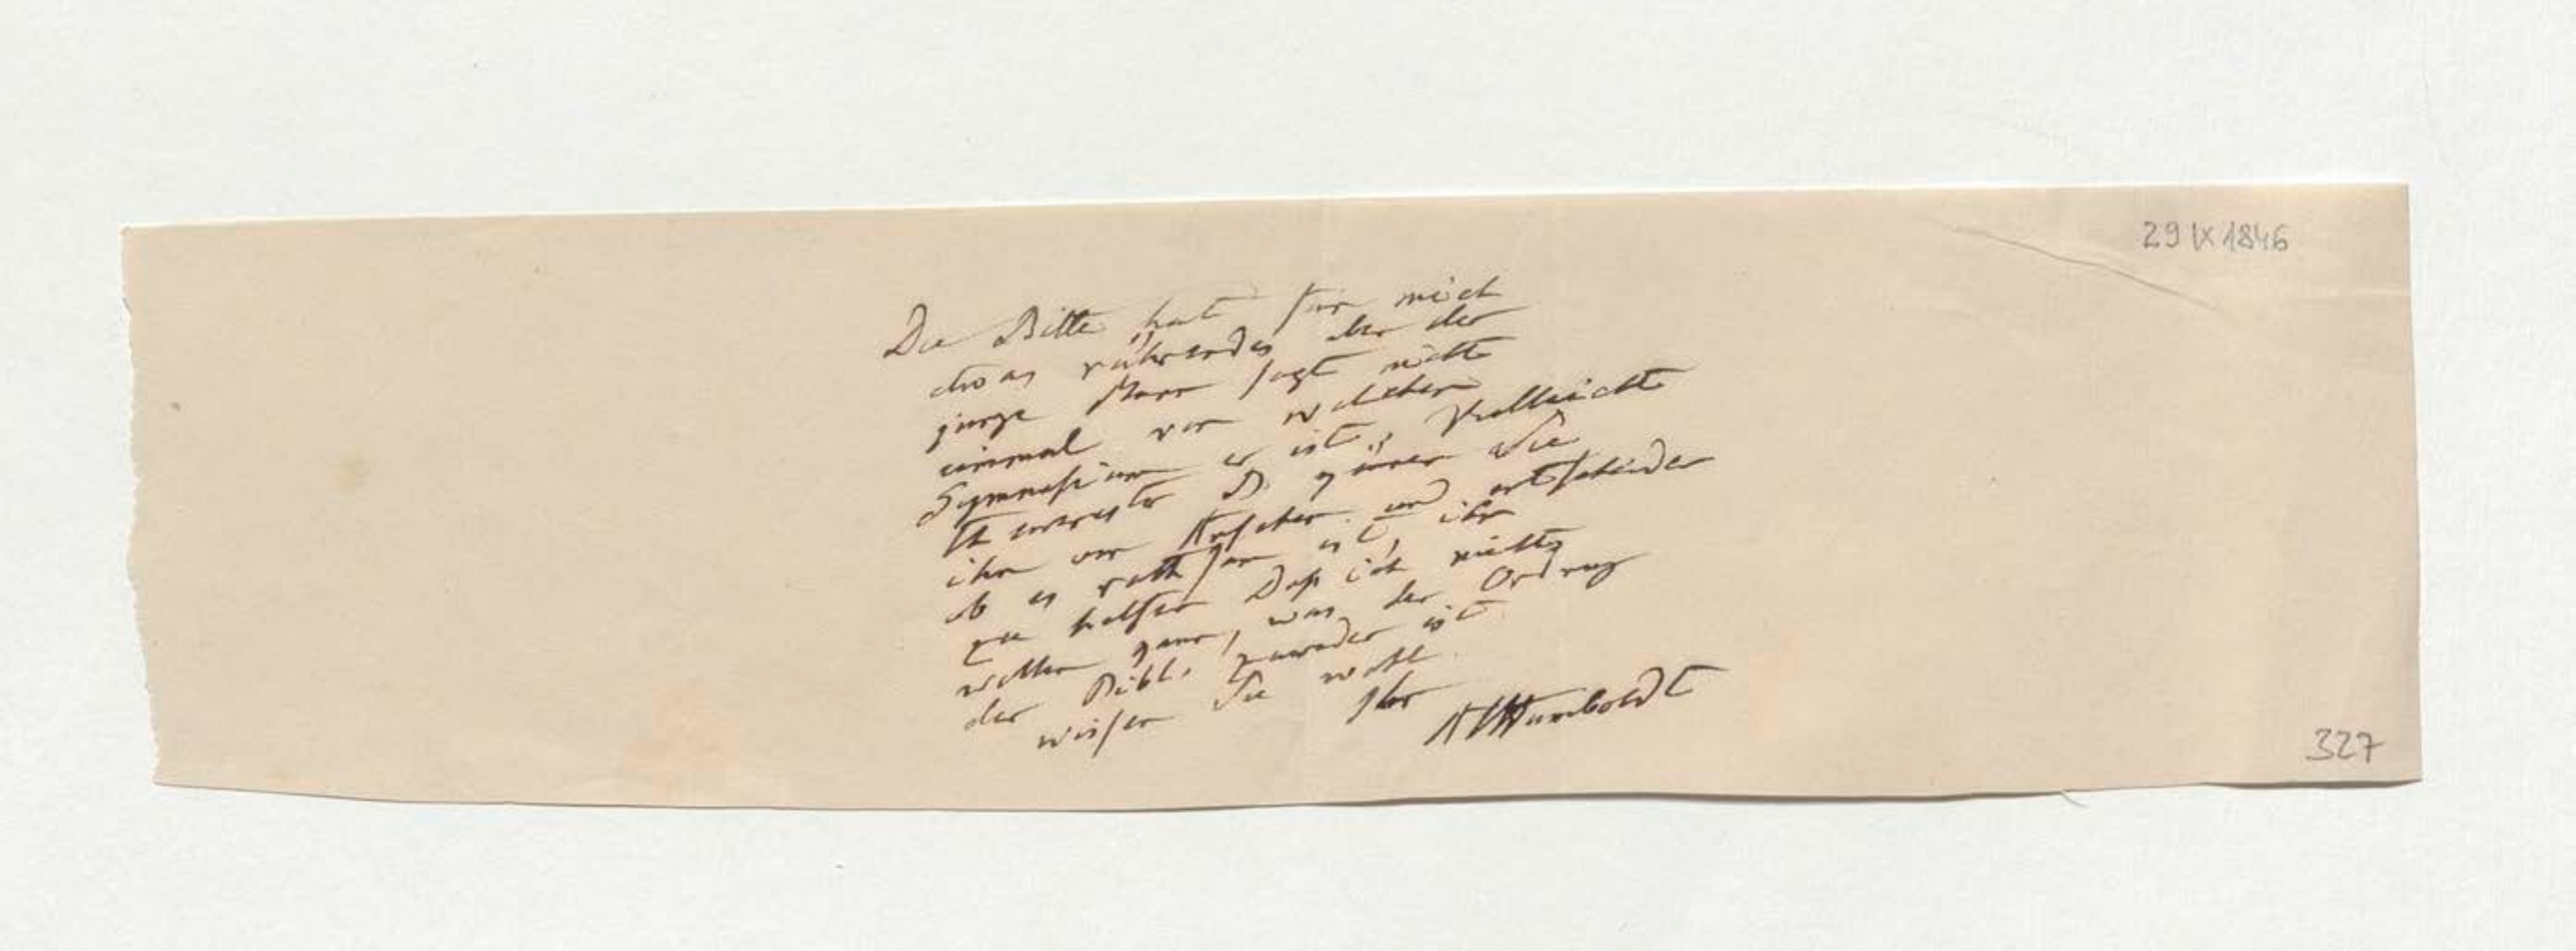 29 IX 1846
Die Bitte hat für mich
etwas rührendes aber der
junge Mann sagt nicht
einmal von welchem
Gymnasium er ist. Vielleicht
gönnen Sie
ihm ein Ansehen und entscheiden
ob es rathsam ist, ihm
zu helfen Daß ich nichts
will was der Ordnung
der Bibl. zuwider ist
wissen Sie wohl.
Ihr
AvHumboldt
327